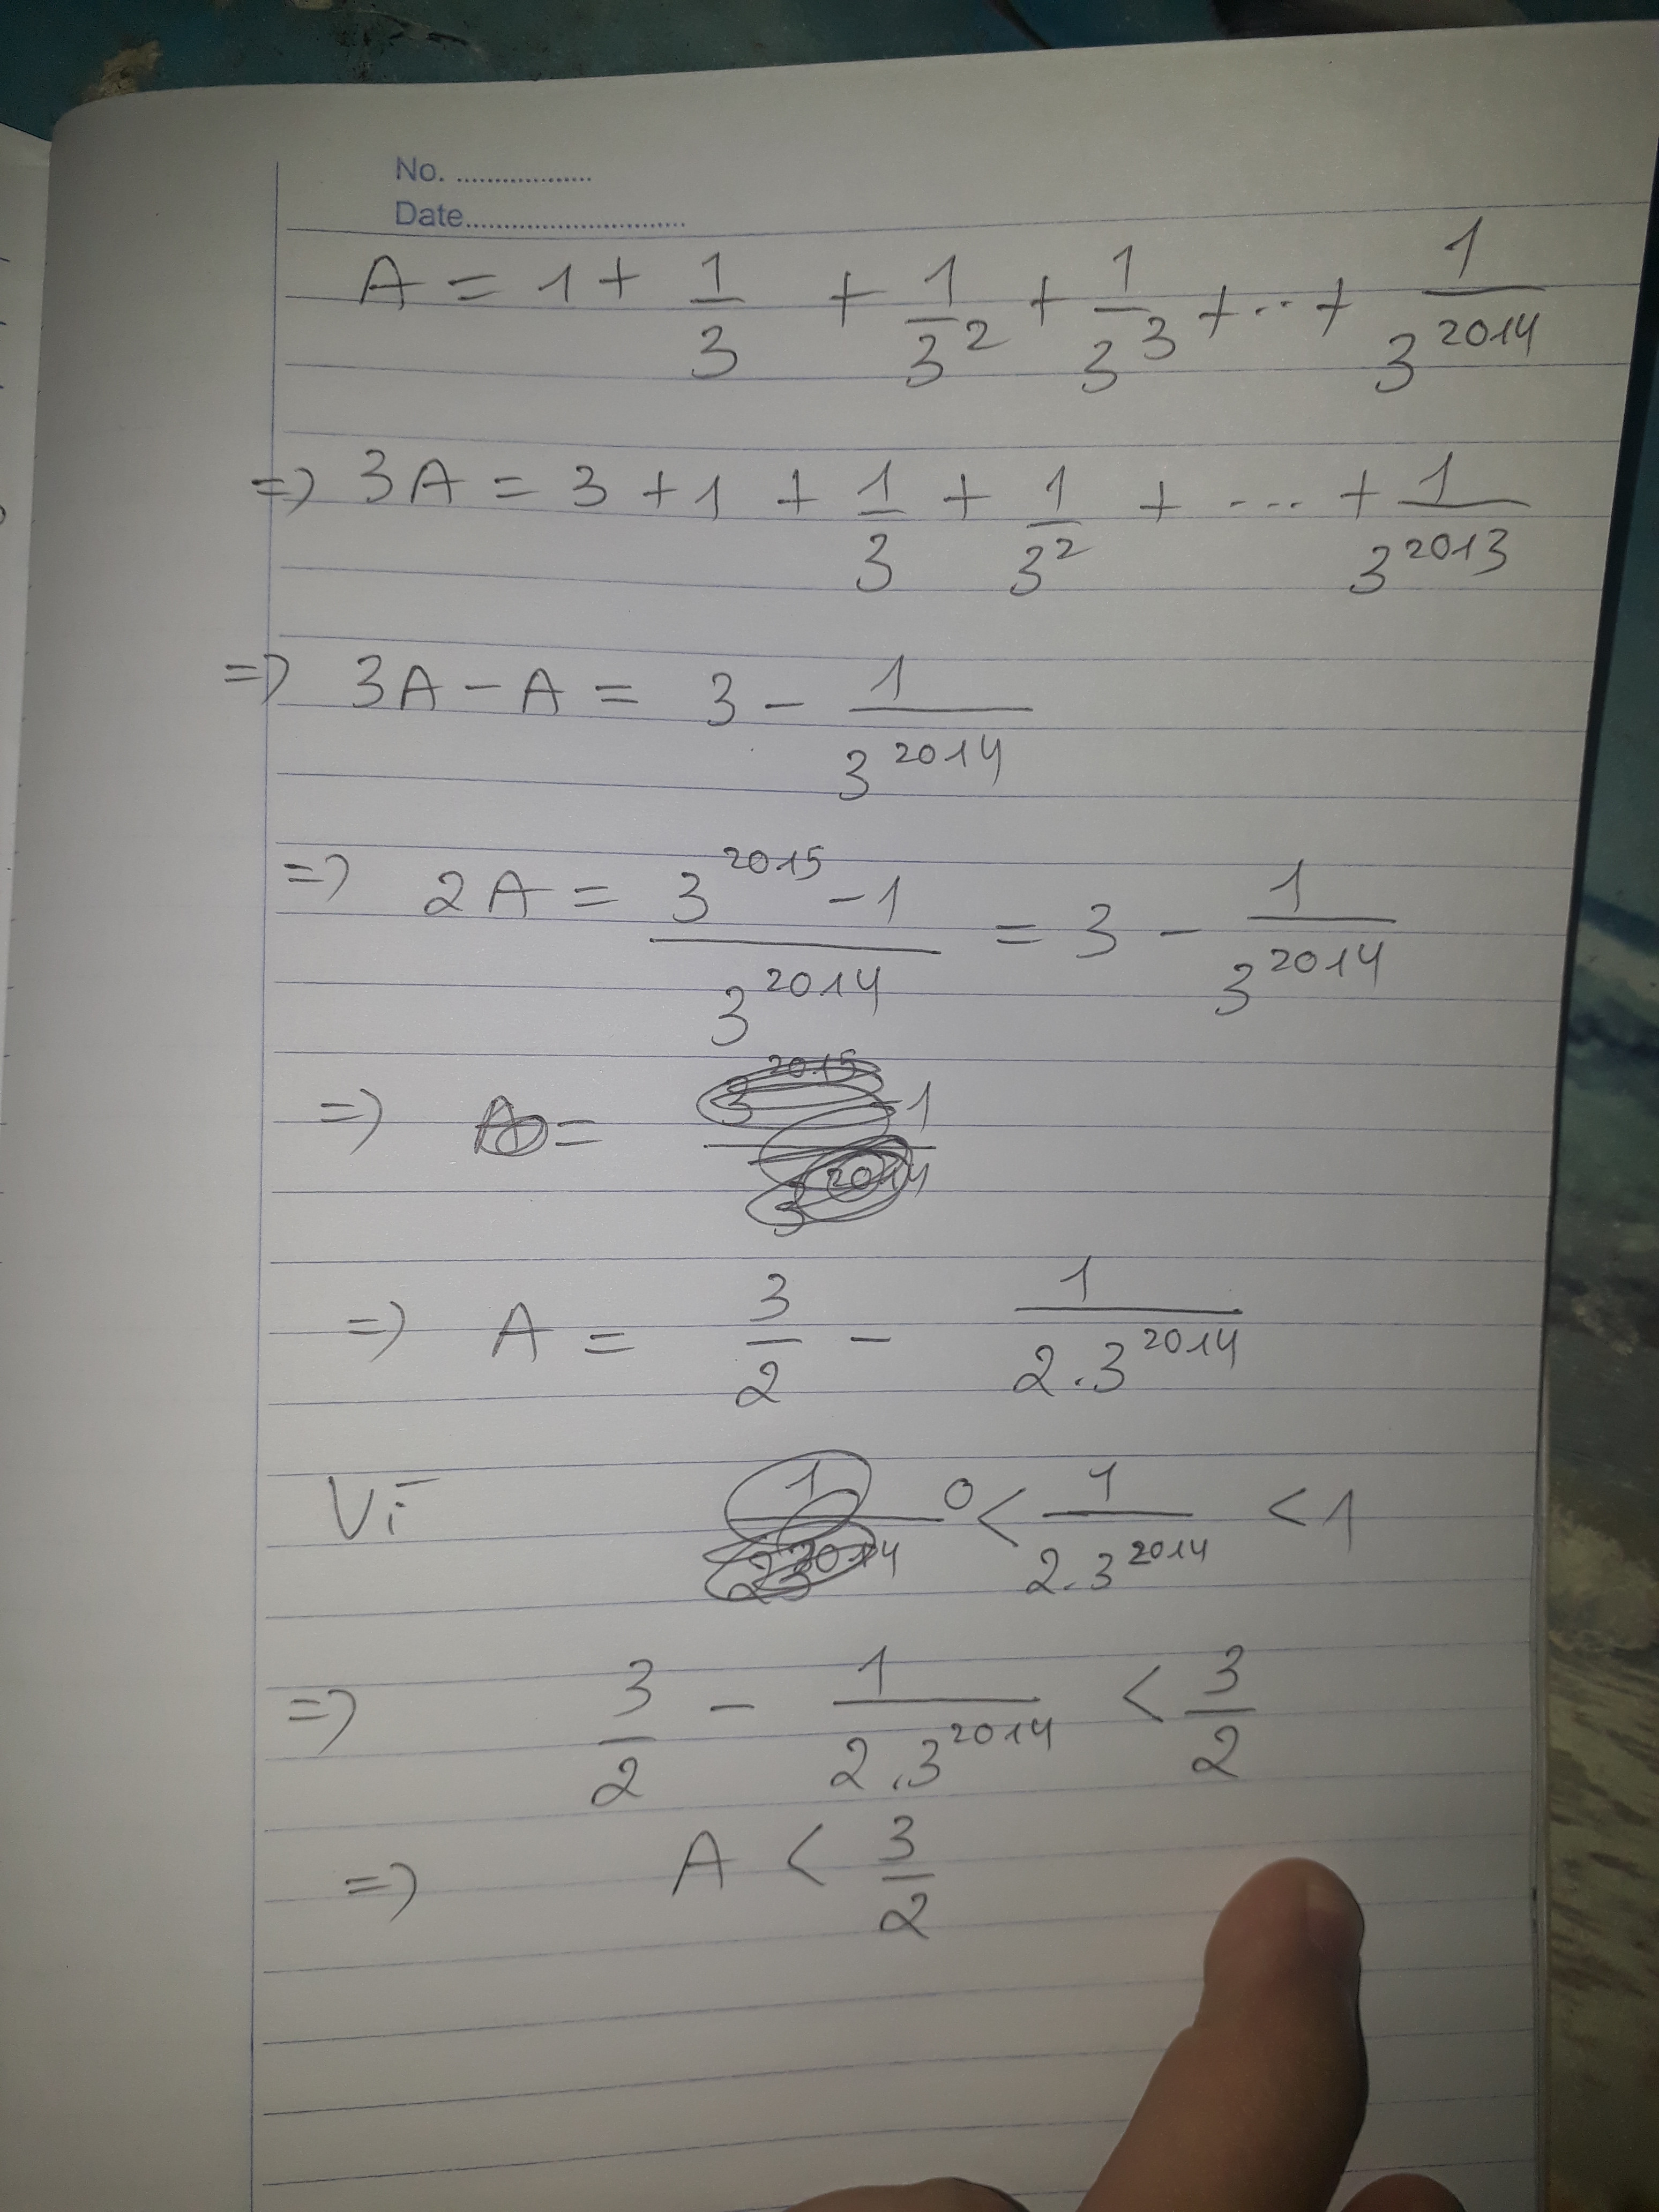 No. ..................
Date.............................
A = 1 + 1/3 + 1/3^2 + 1/3^3 + ... + 1/3^2014
=> 3A = 3 + 1 + 1/3 + 1/3^2 + ... + 1/3^2013
=> 3A - A = 3 - 1/3^2014
=> 2A = (3^2015 - 1)/3^2014 = 3 - 1/3^2014
=> A = (3^2015 - 1)/3^2014
=> A = 3/2 - 1/(2.3^2014)
Vì 0 < 1/(2.3^2014) < 1
=> 3/2 - 1/(2.3^2014) < 3/2
=> A < 3/2